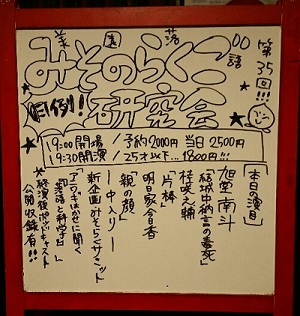 美園落語
みそのらくご
研究会
第35回!!!
月例!
19:00開場 / 予約2000円 当日2500円
19:30開演 / 25才以下…1800円!!!
「本日の演目」
旭堂南斗
「結城中納言の毒死」
桂咲之輔
「片棒」
明日家今日香
「親の顔」
―中入り―
新企画 みそらくサミット
アロワキはかせに聞く
「落語と科学①」
※終演後ポッドキャスト
公開収録有!!!